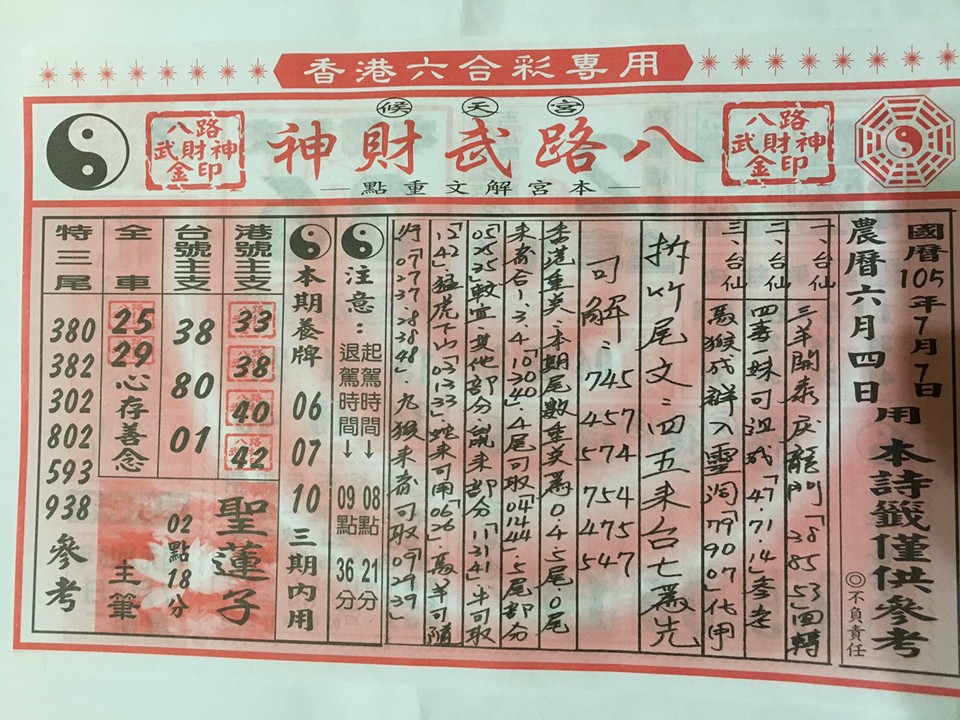 香港六合彩專用
候天宮
八路武財神
本宮解文重點
八路
武財神
金印
八路
武財神
金印
國曆105年7月7日
農曆六月四日用
本詩籤僅供參考
◎不負責任
一、台仙 三羊開泰辰龍門「38 85 53」回轉
二、台仙 四壽一妹司溫戏「47.71.14」參考
三、台仙 馬猴成群入靈洞「79 90 07」代用
拆竹尾文：四五来台七為先
司解：745 457
574 754
475 547
香港重类.本期尾數重类為0.4.5尾.0尾
来看合1.3.4.「10 30 40」.4尾可取「04 14 44」.5尾部分
「05 25 35」較宜.其他部分鼠来部分「11 31 41」.牛可取
「15 42」.猛虎下山「03 13 33」蛇来可用「06 26」.馬羊可隨
「07 27 37.28 38 48」.九猴来看可取「09 29 39」
注意：
起駕時間→08點21分
退駕時間→09點36分
本期養牌 06 07 10 三期內用
港號主支
33
38
40
42
台號主支
38
80
01
聖蓮子
02點18分
主筆
全車
25
29
心存善念
特三尾
380
382
302
802
593
938
參考